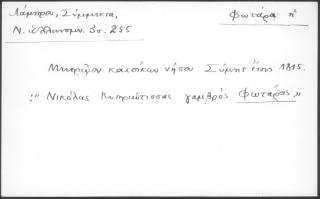 Λάμπρου, Σύμμικτα,
Φωτάρα
Ν. Ἑλληνομν. 3σ. 255
Μητρῷον κατοίκων νήσου Σύμης ἔτους 1815.
:" Νικόλας Κυπριώτισσας γαμβρός Φωτάρας"